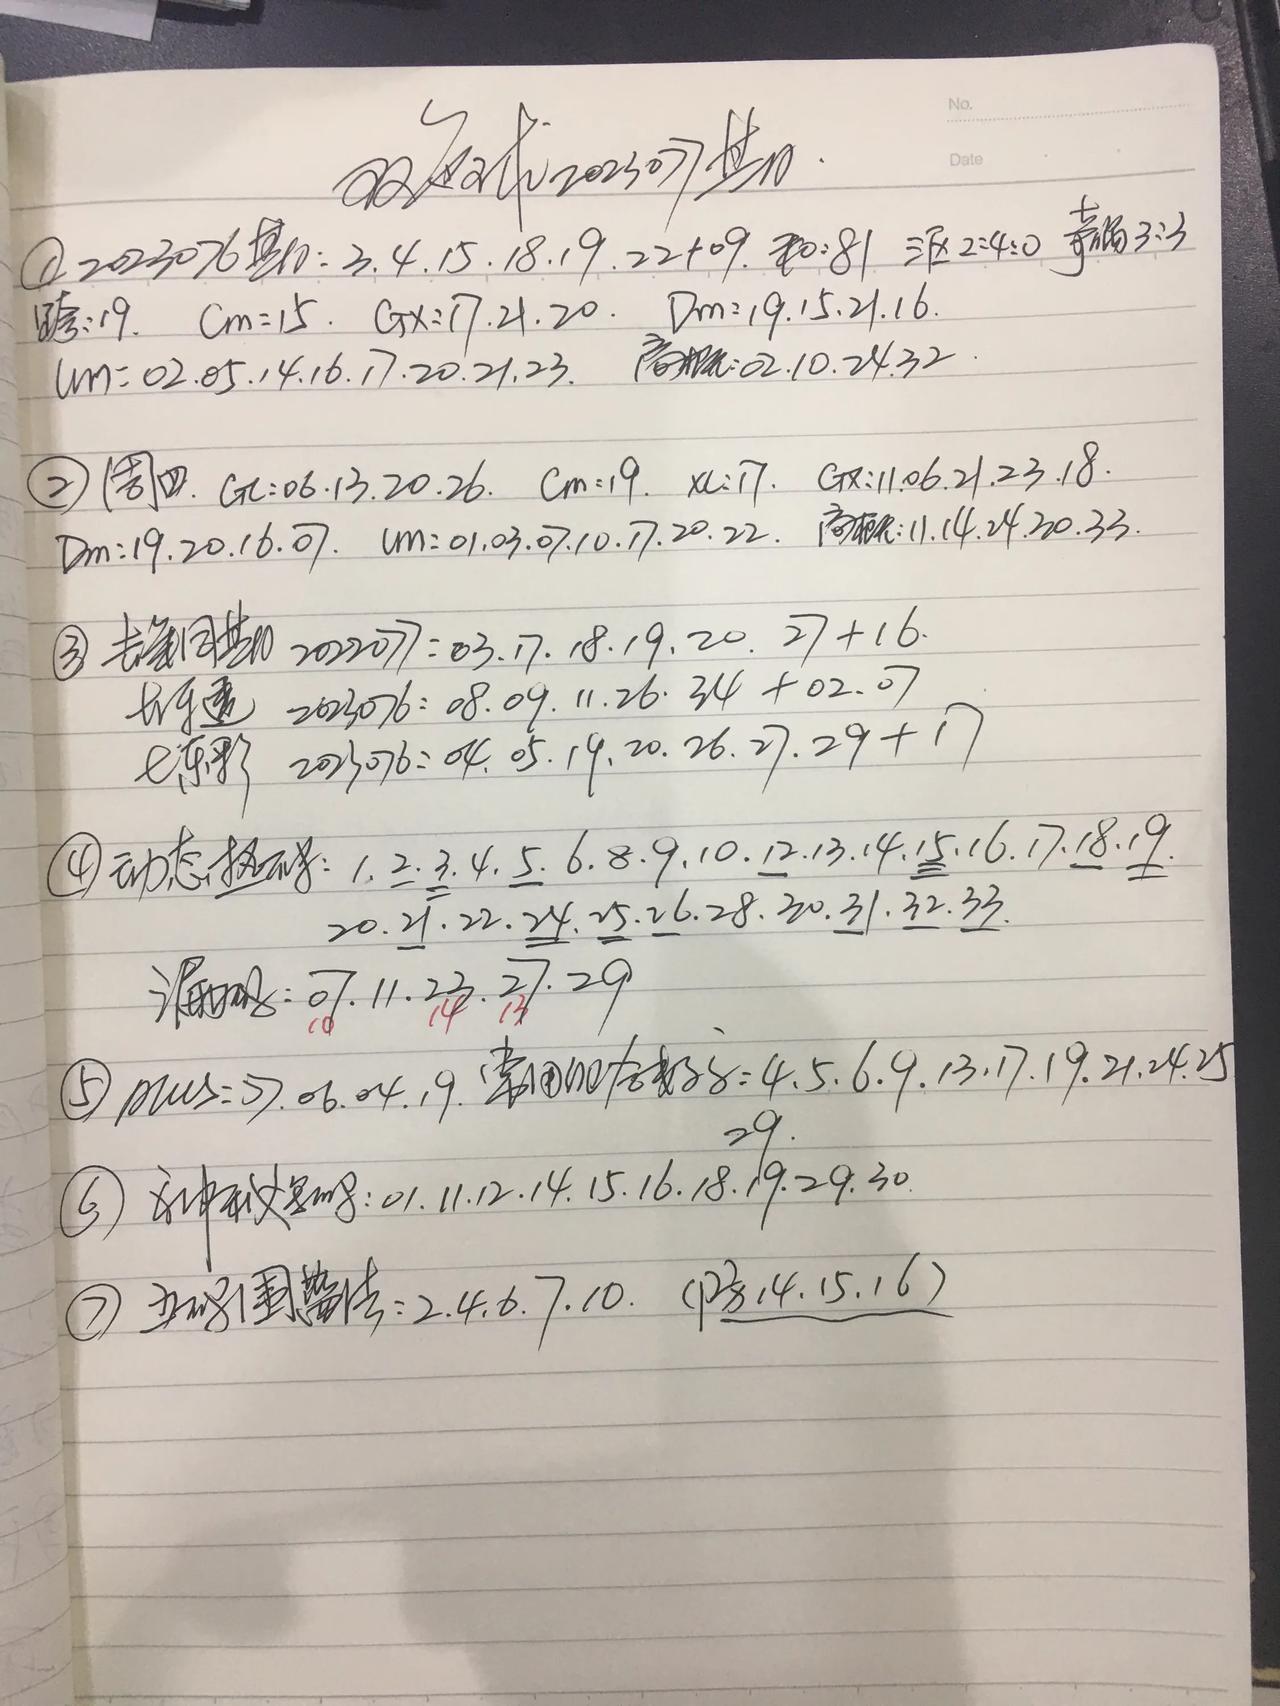 No.
Date
双色球2023077期
① 2023076期: 3.4.15.18.19.22+09. 和:81 三区2:4:0 奇偶3:3
跨:19. Cm=15. GX:17.21.20. Dm:19.15.21.16.
um=02.05.14.16.17.20.21.23. :02.10.24.32.
② 周四. GL:06.13.20.26. Cm:19. XL:17. GX:11.06.21.23.18.
Dm:19.20.16.07. um=01.03.07.10.17.20.22. :11.14.24.30.33.
③ 去年同期 2022077:03.17.18.19.20.27+16.
大乐透 2023076:08.09.11.26.34+02.07
七乐彩 2023076:04.05.19.20.26.27.29+17
④ 动态热码: 1.2.3.4.5.6.8.9.10.12.13.14.15.16.17.18.19.
20.21.22.24.25.26.28.30.31.32.33.
:07.11.23.27.29
10 14 13
⑤ :4.5.6.9.13.17.19.21.24.25
29.
⑥ :01.11.12.14.15.16.18.19.29.30.
⑦ 五码围蓝法:2.4.6.7.10. (防14.15.16)